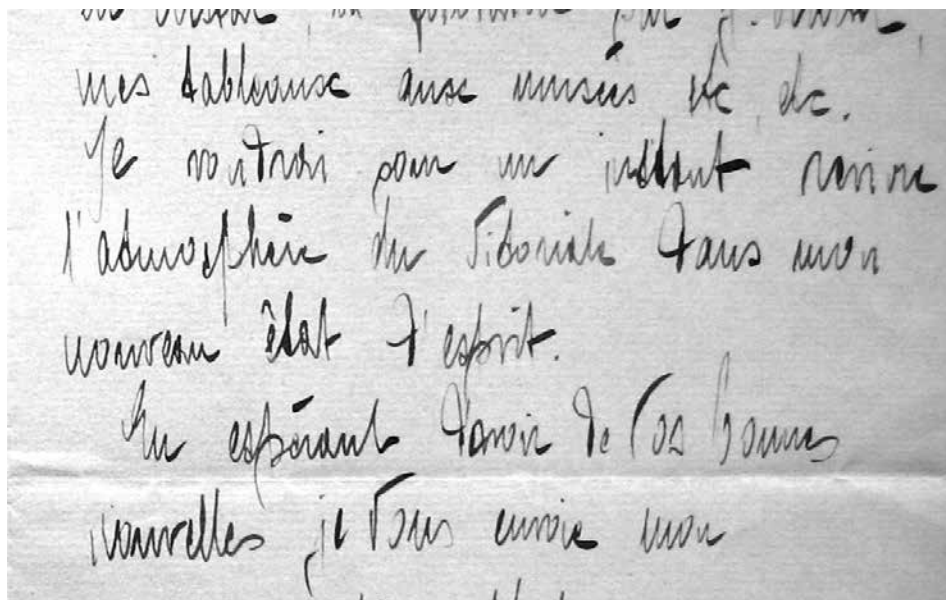 mes tableaux aux musées etc, etc.
Je voudrai pour un instant revivre
l'atmosphère du Vittoriale dans mon
nouveau état d'esprit.
En espérant d'avoir de Vos bonnes
nouvelles je Vous envoie mon